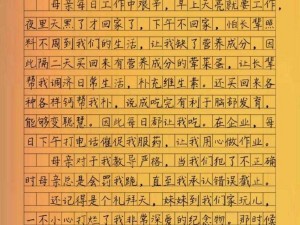 母亲每日工作中艰辛，早上天亮就要工作，
夜里天黑了才回家了，下午不回家，怕长辈
照料不周到我们的生活，让我缺了营养成分，因
此隔二天买回来有营养成分的荤菜蛋，让长辈
帮我调济日常生活，补充维生素。还买回来各
种各样钙帮我补，说成吃了有利于脑部发育，
能够变聪慧。因此每日都让我吃。在企业，每
日下午打电话催促我服药，让我用心做作业。
母亲对于我教导严格，当我们犯了不正确
时母亲总是会罚我跪，直至我承认错误截止。
还记得是个礼拜天，妹妹到我们家玩儿，
一不小心打烂了我非常深爱的纪念物，那时候